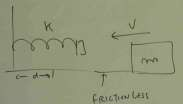 K
V
m
← d →
↑
FRICTIONLESS